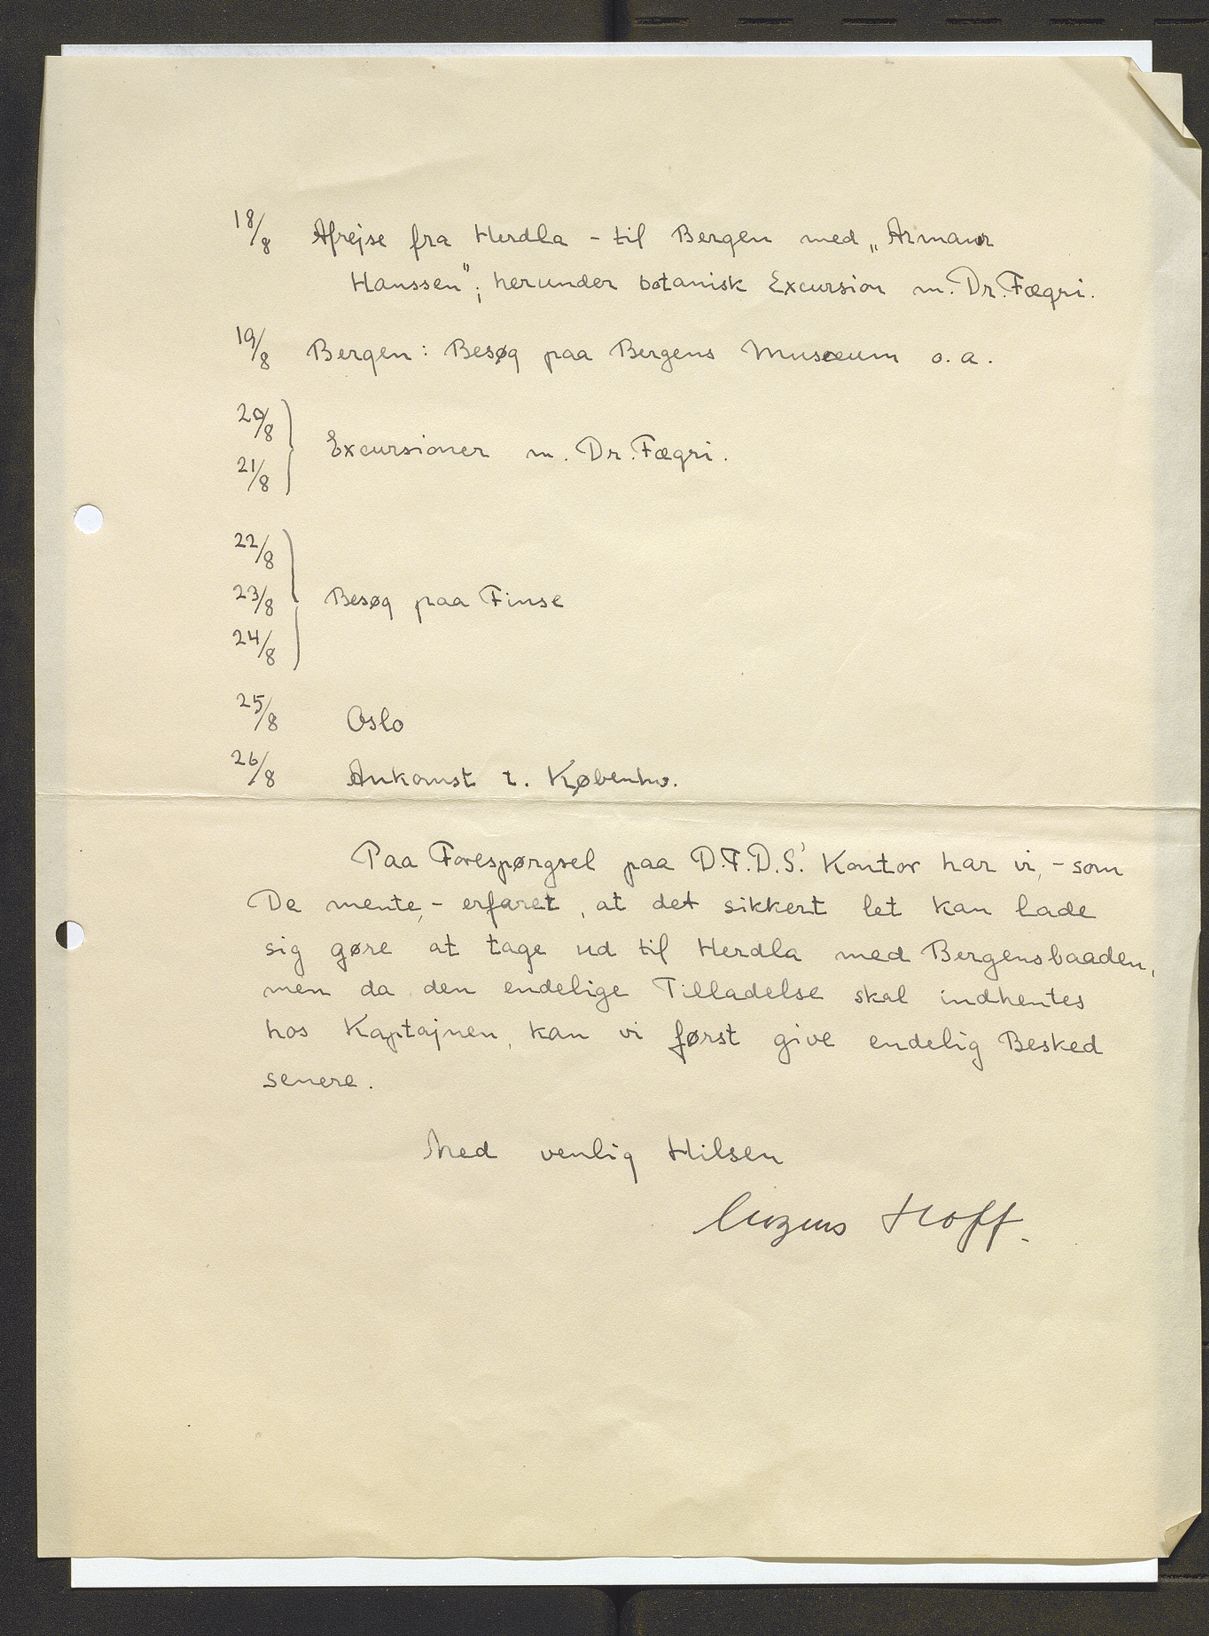 18/8 Afrejse fra Herdla - til Bergen med „Armauer
Hanssen"; herunder botanisk Excursion m. Dr. Fægri.
19/8 Bergen: Besøg paa Bergens Museum o.a.
20/8
21/8 Excursioner m. Dr. Fægri.
22/8
23/8 Besøg paa Finse
24/8
25/8 Oslo
26/8 Ankomst t. Københv.
Paa Forespørgsel paa D.F.D.S.' Kontor har vi, - som
De mente, - erfaret, at det sikkert let kan lade
sig gøre at tage ud til Herdla med Bergensbaaden,
men da den endelige Tilladelse skal indhentes
hos Kaptajnen, kan vi først give endelig Besked
senere.
Med venlig Hilsen
Mogens Hoff.